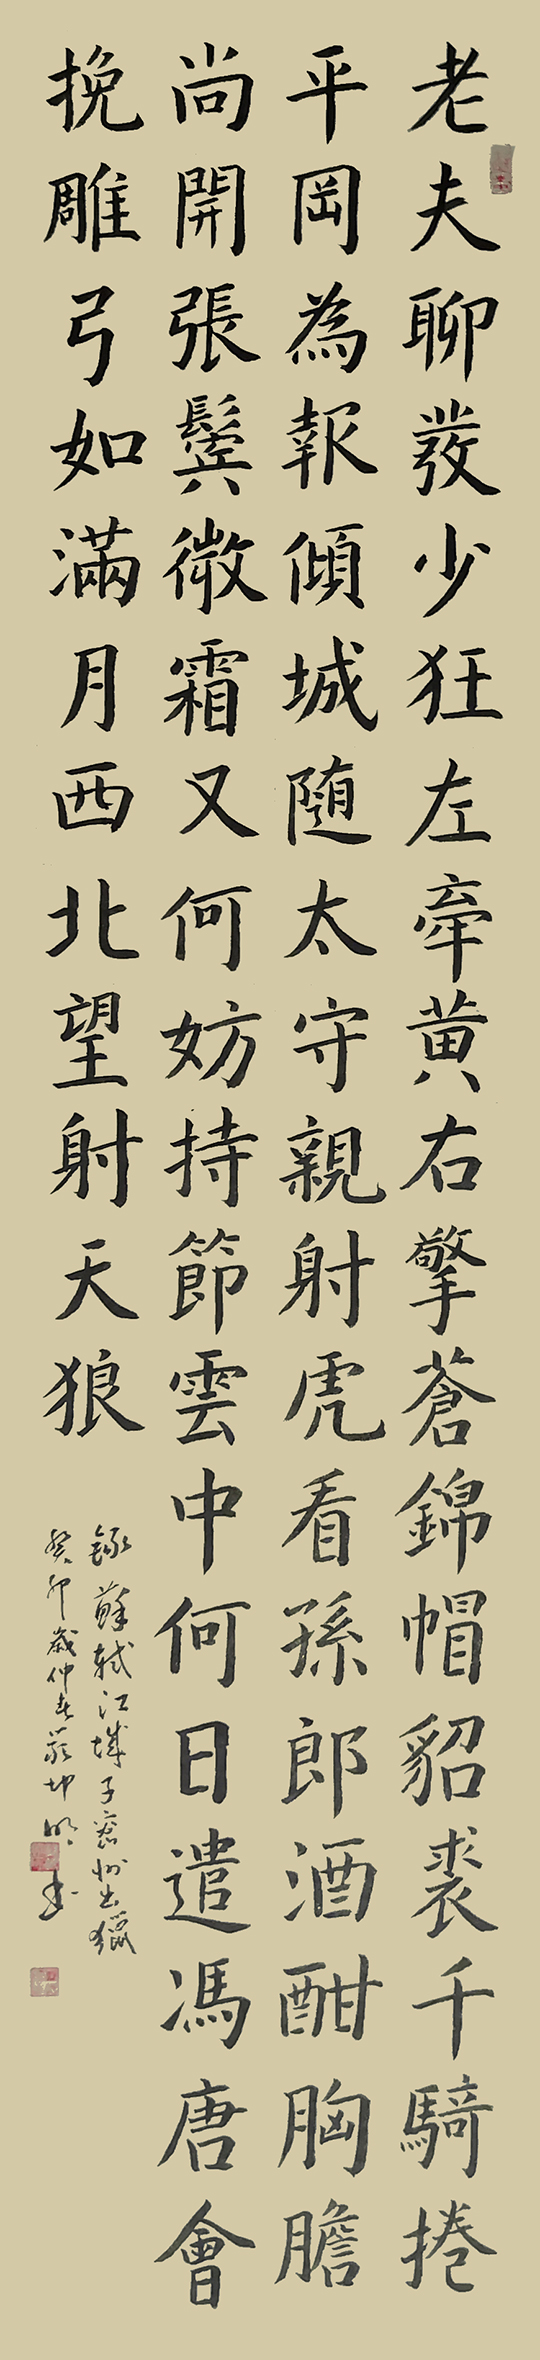 老夫聊發少狂左牽黃右擎蒼錦帽貂裘千騎捲
平岡為報傾城隨太守親射虎看孫郎酒酣胸膽
尚開張鬢微霜又何妨持節雲中何日遣馮唐會
挽雕弓如滿月西北望射天狼
錄蘇軾江城子密州出獵
癸卯歲仲春嚴坤明書